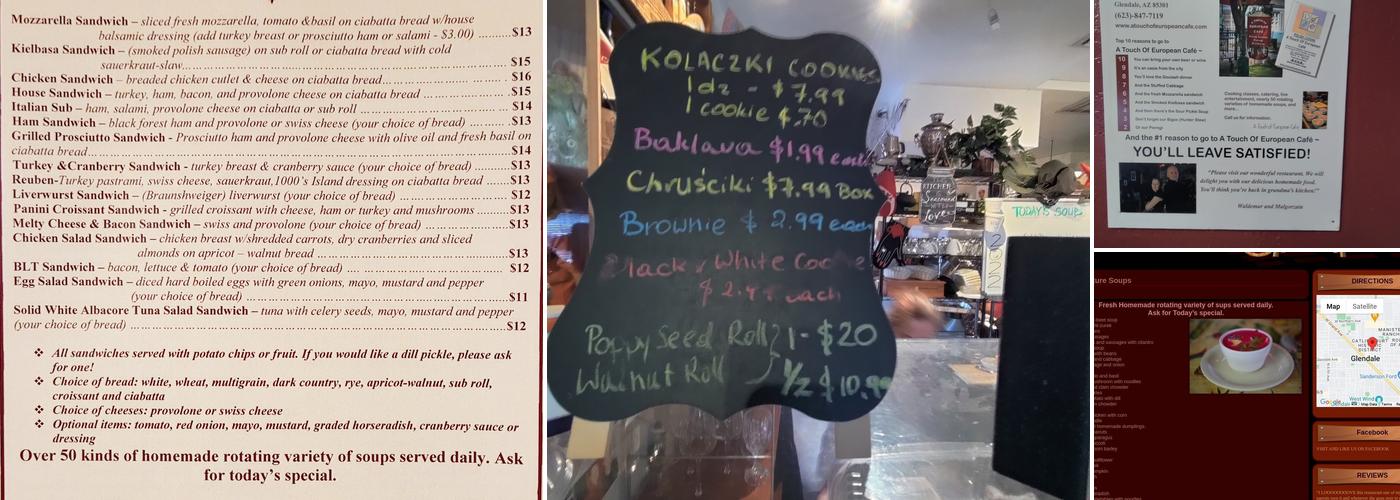 Mozzarella Sandwich – sliced fresh mozzarella, tomato &basil on ciabatta bread w/house
balsamic dressing (add turkey breast or prosciutto ham or salami - $3.00) .........$13
Kielbasa Sandwich – (smoked polish sausage) on sub roll or ciabatta bread with cold
sauerkraut-slaw............ $15
Chicken Sandwich – breaded chicken cutlet & cheese on ciabatta bread............ $16
House Sandwich – turkey, ham, bacon, and provolone cheese on ciabatta bread ............ $15
Italian Sub – ham, salami, provolone cheese on ciabatta or sub roll ............ $14
Ham Sandwich – black forest ham and provolone or swiss cheese (your choice of bread) ............ $13
Grilled Prosciutto Sandwich - Prosciutto ham and provolone cheese with olive oil and fresh basil on
ciabatta bread............ $14
Turkey &Cranberry Sandwich - turkey breast & cranberry sauce (your choice of bread) ............ $13
Reuben-Turkey pastrami, swiss cheese, sauerkraut,1000's Island dressing on ciabatta bread ....... $13
Liverwurst Sandwich – (Braunshweiger) liverwurst (your choice of bread) ............ $12
Panini Croissant Sandwich - grilled croissant with cheese, ham or turkey and mushrooms ......... $13
Melty Cheese & Bacon Sandwich – swiss and provolone (your choice of bread) ............ $13
Chicken Salad Sandwich – chicken breast w/shredded carrots, dry cranberries and sliced
almonds on apricot – walnut bread ............ $13
BLT Sandwich – bacon, lettuce & tomato (your choice of bread) ............ $12
Egg Salad Sandwich – diced hard boiled eggs with green onions, mayo, mustard and pepper
(your choice of bread) ............ $11
Solid White Albacore Tuna Salad Sandwich – tuna with celery seeds, mayo, mustard and pepper
(your choice of bread) ............ $12
❖ All sandwiches served with potato chips or fruit. If you would like a dill pickle, please ask
for one!
❖ Choice of bread: white, wheat, multigrain, dark country, rye, apricot-walnut, sub roll,
croissant and ciabatta
❖ Choice of cheeses: provolone or swiss cheese
❖ Optional items: tomato, red onion, mayo, mustard, graded horseradish, cranberry sauce or
dressing
Over 50 kinds of homemade rotating variety of soups served daily. Ask
for today's special.
KOLACZKI COOKIES
1 dz - $7.99
1 cookie $.70
Baklava $1.99 each
Chruściki $7.99 Box
Brownie $2.99 each
Black & White Cookie
each
Poppy Seed Roll 1 - $20
Walnut Roll 1/2 $10.99
KITCHEN
Seasoned
WITH
love
TODAY'S SOUP
Glendale, AZ 85301
(623)-847-7119
www.atouchofeuropeancafe.com
Top 10 reasons to go to
A Touch Of European Café ~
10 You can bring your own beer or wine
9 It's an oasis from the city
8 You'll love the Goulash dinner
7 And the Stuffed Cabbage
6 And the fresh Mozzarella sandwich
5 And the Smoked Kielbasa sandwich
4 And then there's the Sour Pickle Soup
3 Don't forget our Bigos (Hunter Stew)
2 Or our Pierogi
Cooking classes, catering, live
entertainment, nearly 50 rotating
varieties of homemade soups, and
more...
Call us for information.
And the #1 reason to go to A Touch Of European Cafe ~
YOU'LL LEAVE SATISFIED!
"Please visit our wonderful restaurant. We will
delight you with our delicious homemade food.
You'll think you're back in grandma's kitchen!"
Waldemar and Malgorzata
ture Soups
Fresh Homemade rotating variety of sups served daily.
Ask for Today's special.
DIRECTIONS
Map Satellite
Glendale
Google
Facebook
VISIT AND LIKE US ON FACEBOOK
REVIEWS